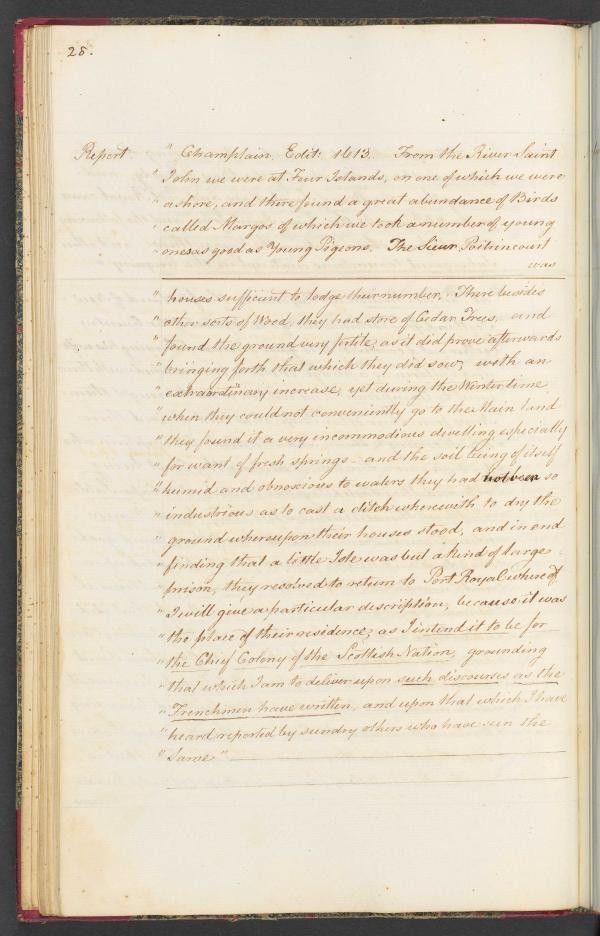 28.
Report " Champlain. Edit: 1613. From the River Saint
" John we were at Four Islands, on one of which we were
" ashore, and there found a great abundance of Birds
" called Margos of which we took a number of young
" ones as good as Young Pigeons. The Sieur Poitrincourt
was
" houses sufficient to lodge their number. There besides
" other sorts of Wood, they had store of Cedar Trees, and
" found the ground very fertile, as it did prove afterwards
" bringing forth that which they did sow, with an
" extraordinary increase, yet during the Winter time
" when they could not conveniently go to the Main land
" they found it a very incommodious dwelling especially
" for want of fresh springs - and the soil being of itself
" humid and obnoxious to waters they had not been so
" industrious as to cast a ditch wherewith to dry the
" ground whereupon their houses stood, and in end
" finding that a little Isle was but a kind of large
" prison, they resolved to return to Port Royal whereof
" I will give a particular description, because it was
" the place of their residence, as I intend it to be for
" the Chief Colony of the Scottish Nation, grounding
" that which I am to deliver upon such discourses as the
" Frenchmen have written, and upon that which I have
" heard reported by sundry others who have seen the
" Same"